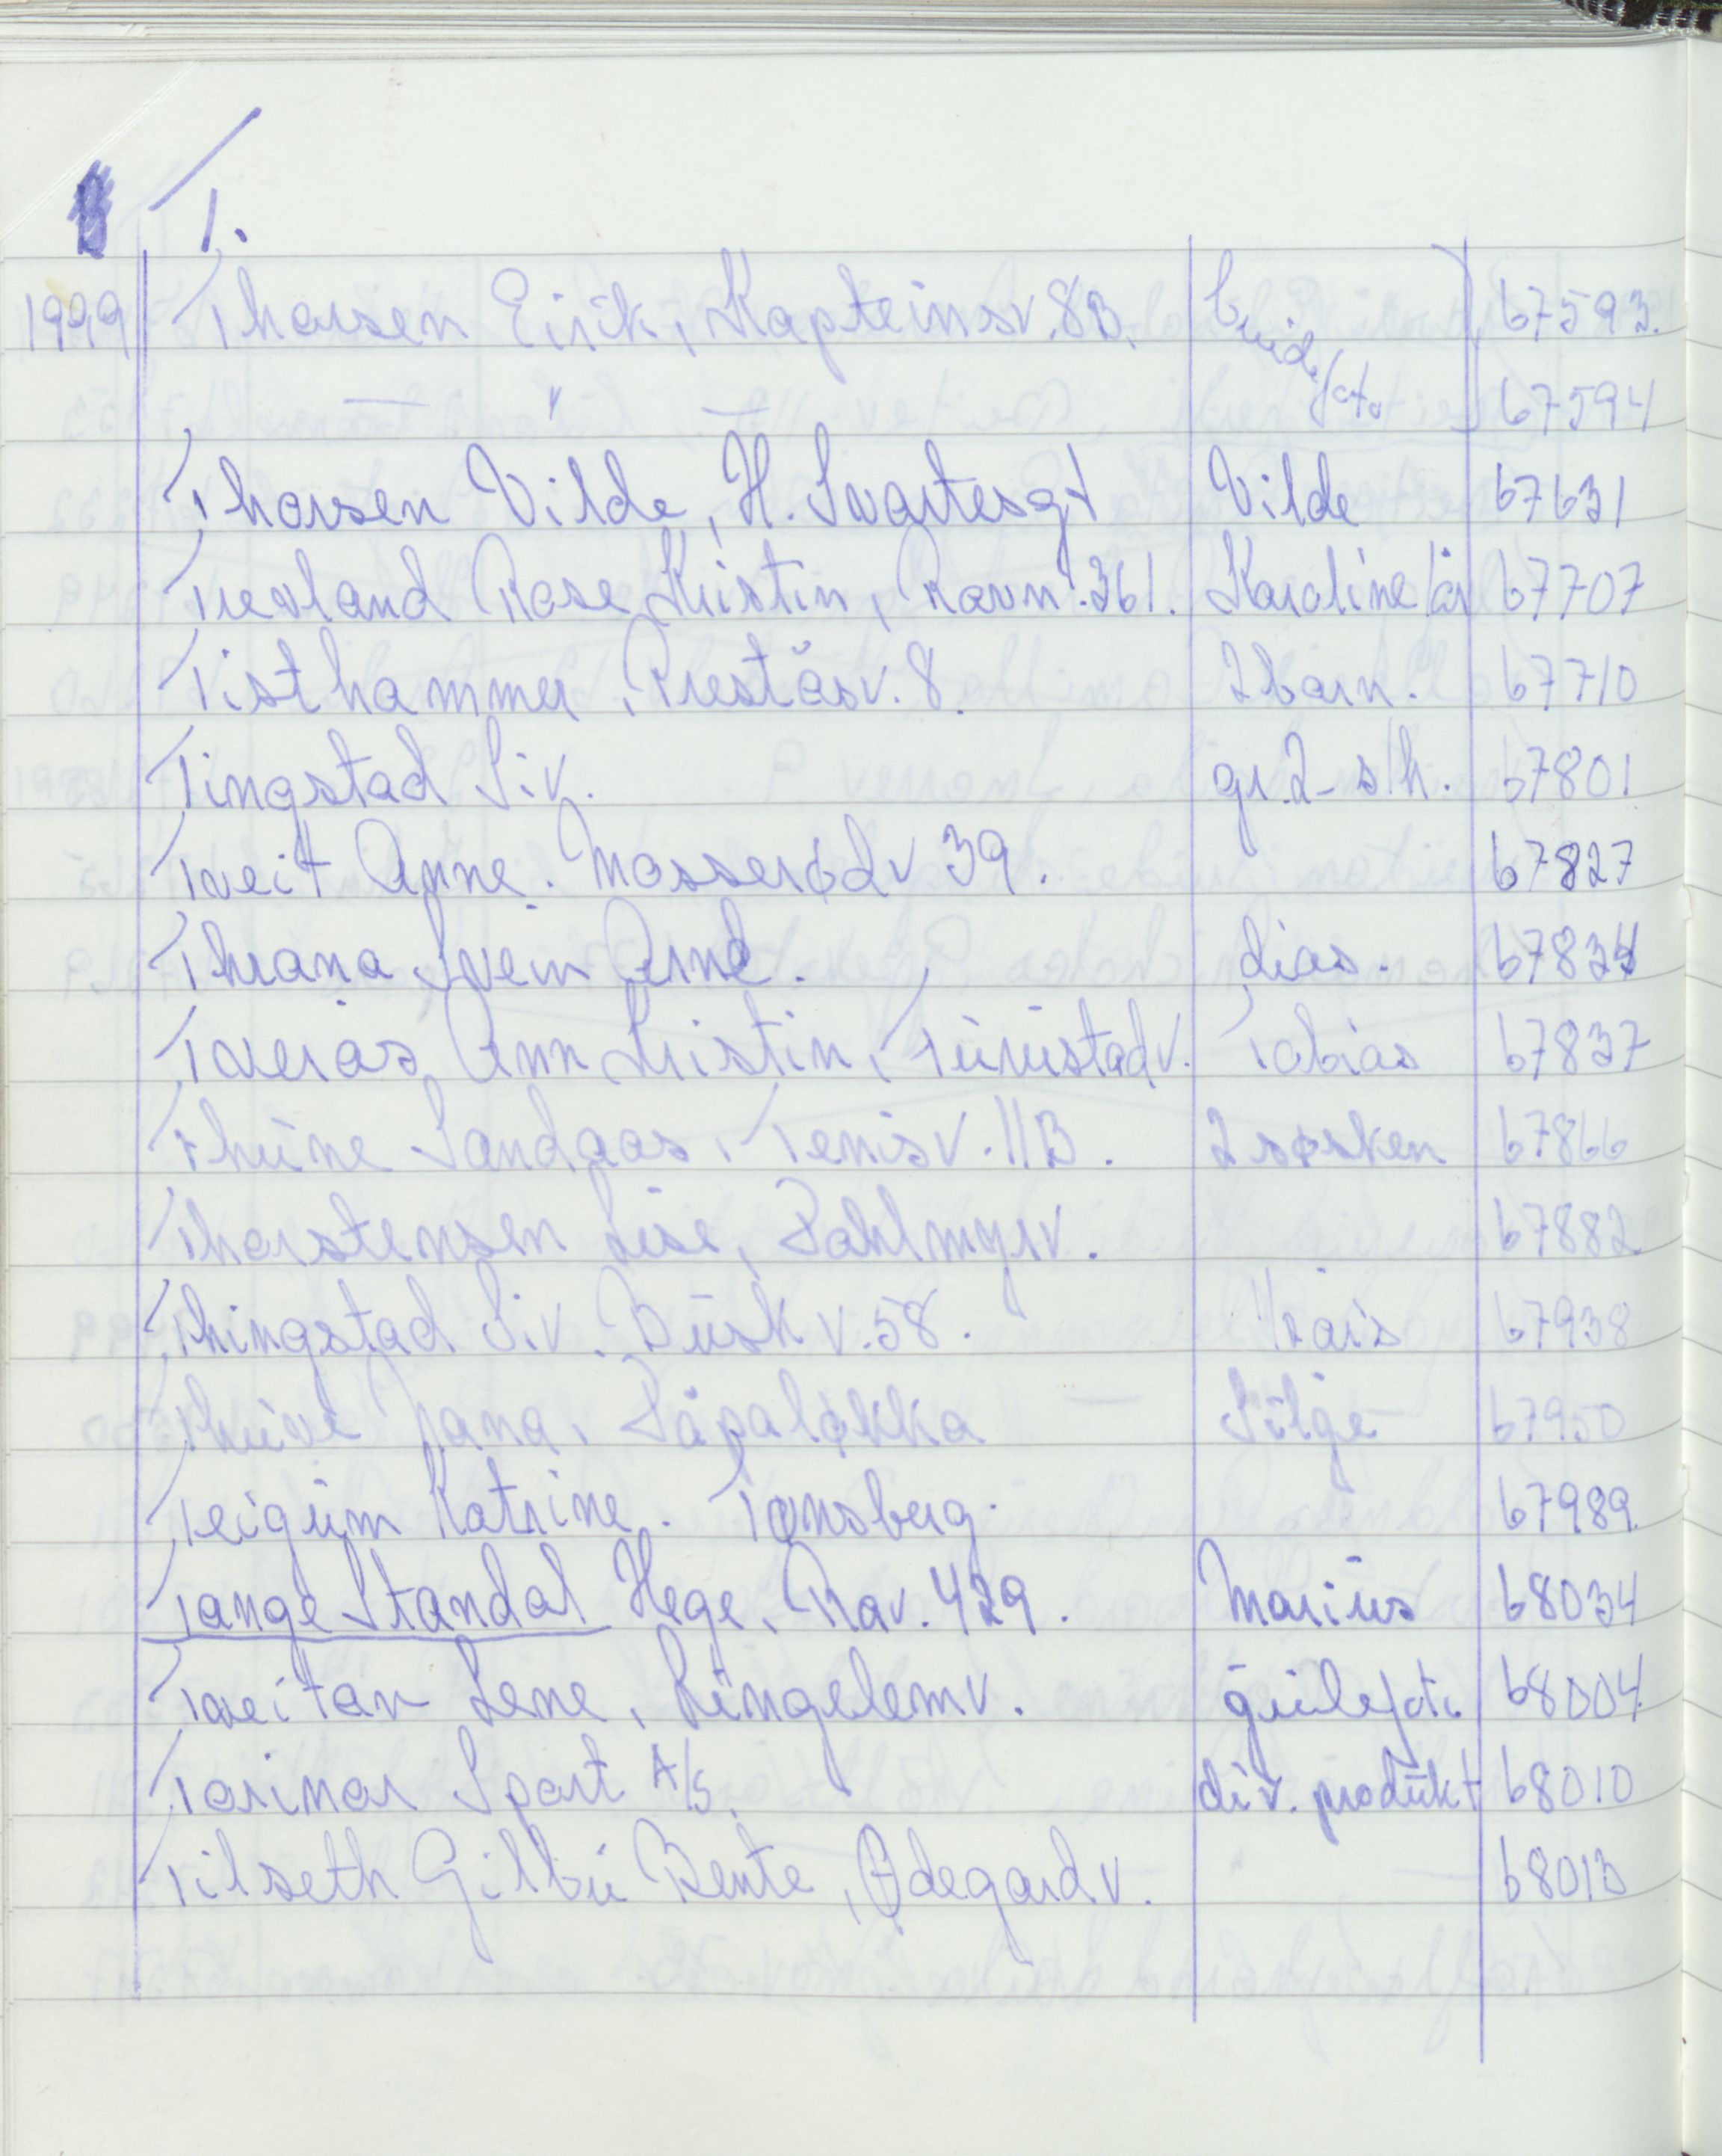 T.
1999 Thorsen Eirik, Kapteinsv. 8B. brud/foto 67593.
— " — 67594
Thorsen Vilde, H. Svartesgt Vilde 67631
Trevland Rose Kristin, Ravn. 361. Karoline 1år 67707
Tisthammer, Preståsv. 8. 2 barn. 67710
Tingstad Siv. gr. 2 - s/h. 67801
Tveit Anne. Mosserødv 39. 67827
Thrana Svein Arne. dias. 67834
Tverås Ann Kristin, Turistadv. Tobias 67837
Thune Sandaas, Tenisv. 11B. 2 søsken 67866
Thorstensen Lise, Dahlmyrv. 67882
Thingstad Siv. Buskv. 58. 1/2 års 67938
Thuve Jana, Påpaløkka Silje 67950
Teigum Katrine. Tønsberg. 67989.
Tange Standal Hege, Rav. 429. Marius 68034
Tveitan Lene, Lingelemv. gullfoto 68004
Torimor Sport A/S. div. produkt 68010
Tilseth Gilbu Bente, Ødegardv. 68013